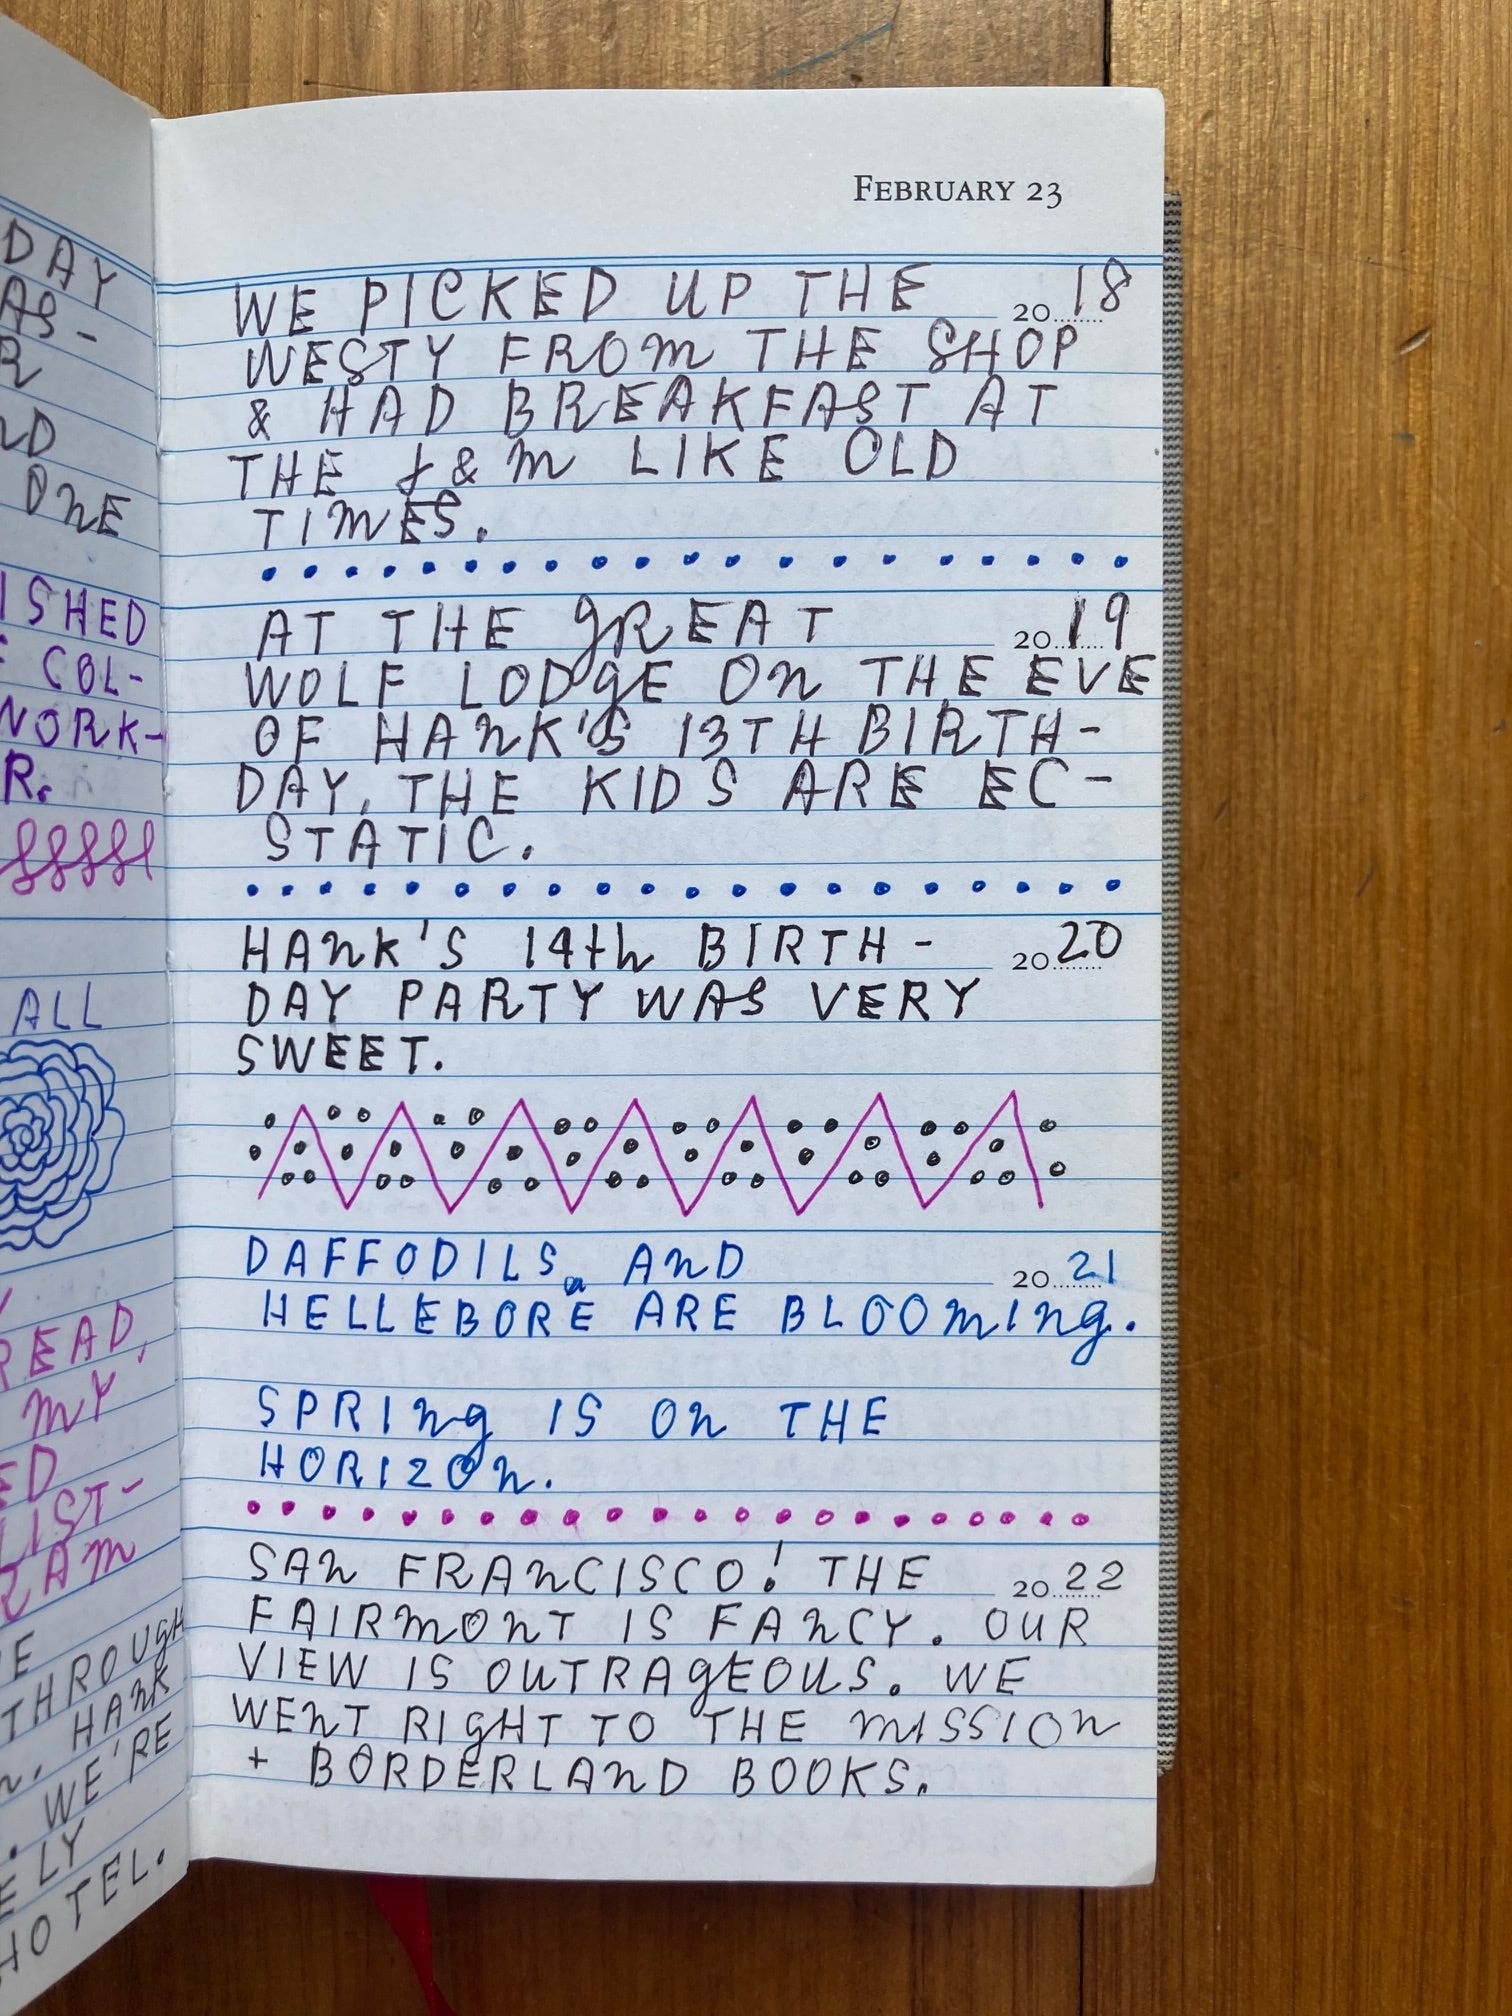 DAY
AS-
R
ND
ONE
ISHED
COL-
WORK-
R.
ALL
READ,
MY
ED
LIST-
RAM
THROUGH
HANK
WE'RE
ELY
HOTEL.
FEBRUARY 23
WE PICKED UP THE 2018
WESTY FROM THE SHOP
& HAD BREAKFAST AT
THE J&M LIKE OLD
TIMES.
AT THE GREAT 2019
WOLF LODGE ON THE EVE
OF HANK'S 13TH BIRTH-
DAY. THE KIDS ARE EC-
STATIC.
HANK'S 14th BIRTH- 2020
DAY PARTY WAS VERY
SWEET.
DAFFODILS AND 2021
HELLEBORE ARE BLOOMING.
SPRING IS ON THE
HORIZON.
SAN FRANCISCO! THE 2022
FAIRMONT IS FANCY. OUR
VIEW IS OUTRAGEOUS. WE
WENT RIGHT TO THE MISSION
+ BORDERLAND BOOKS.